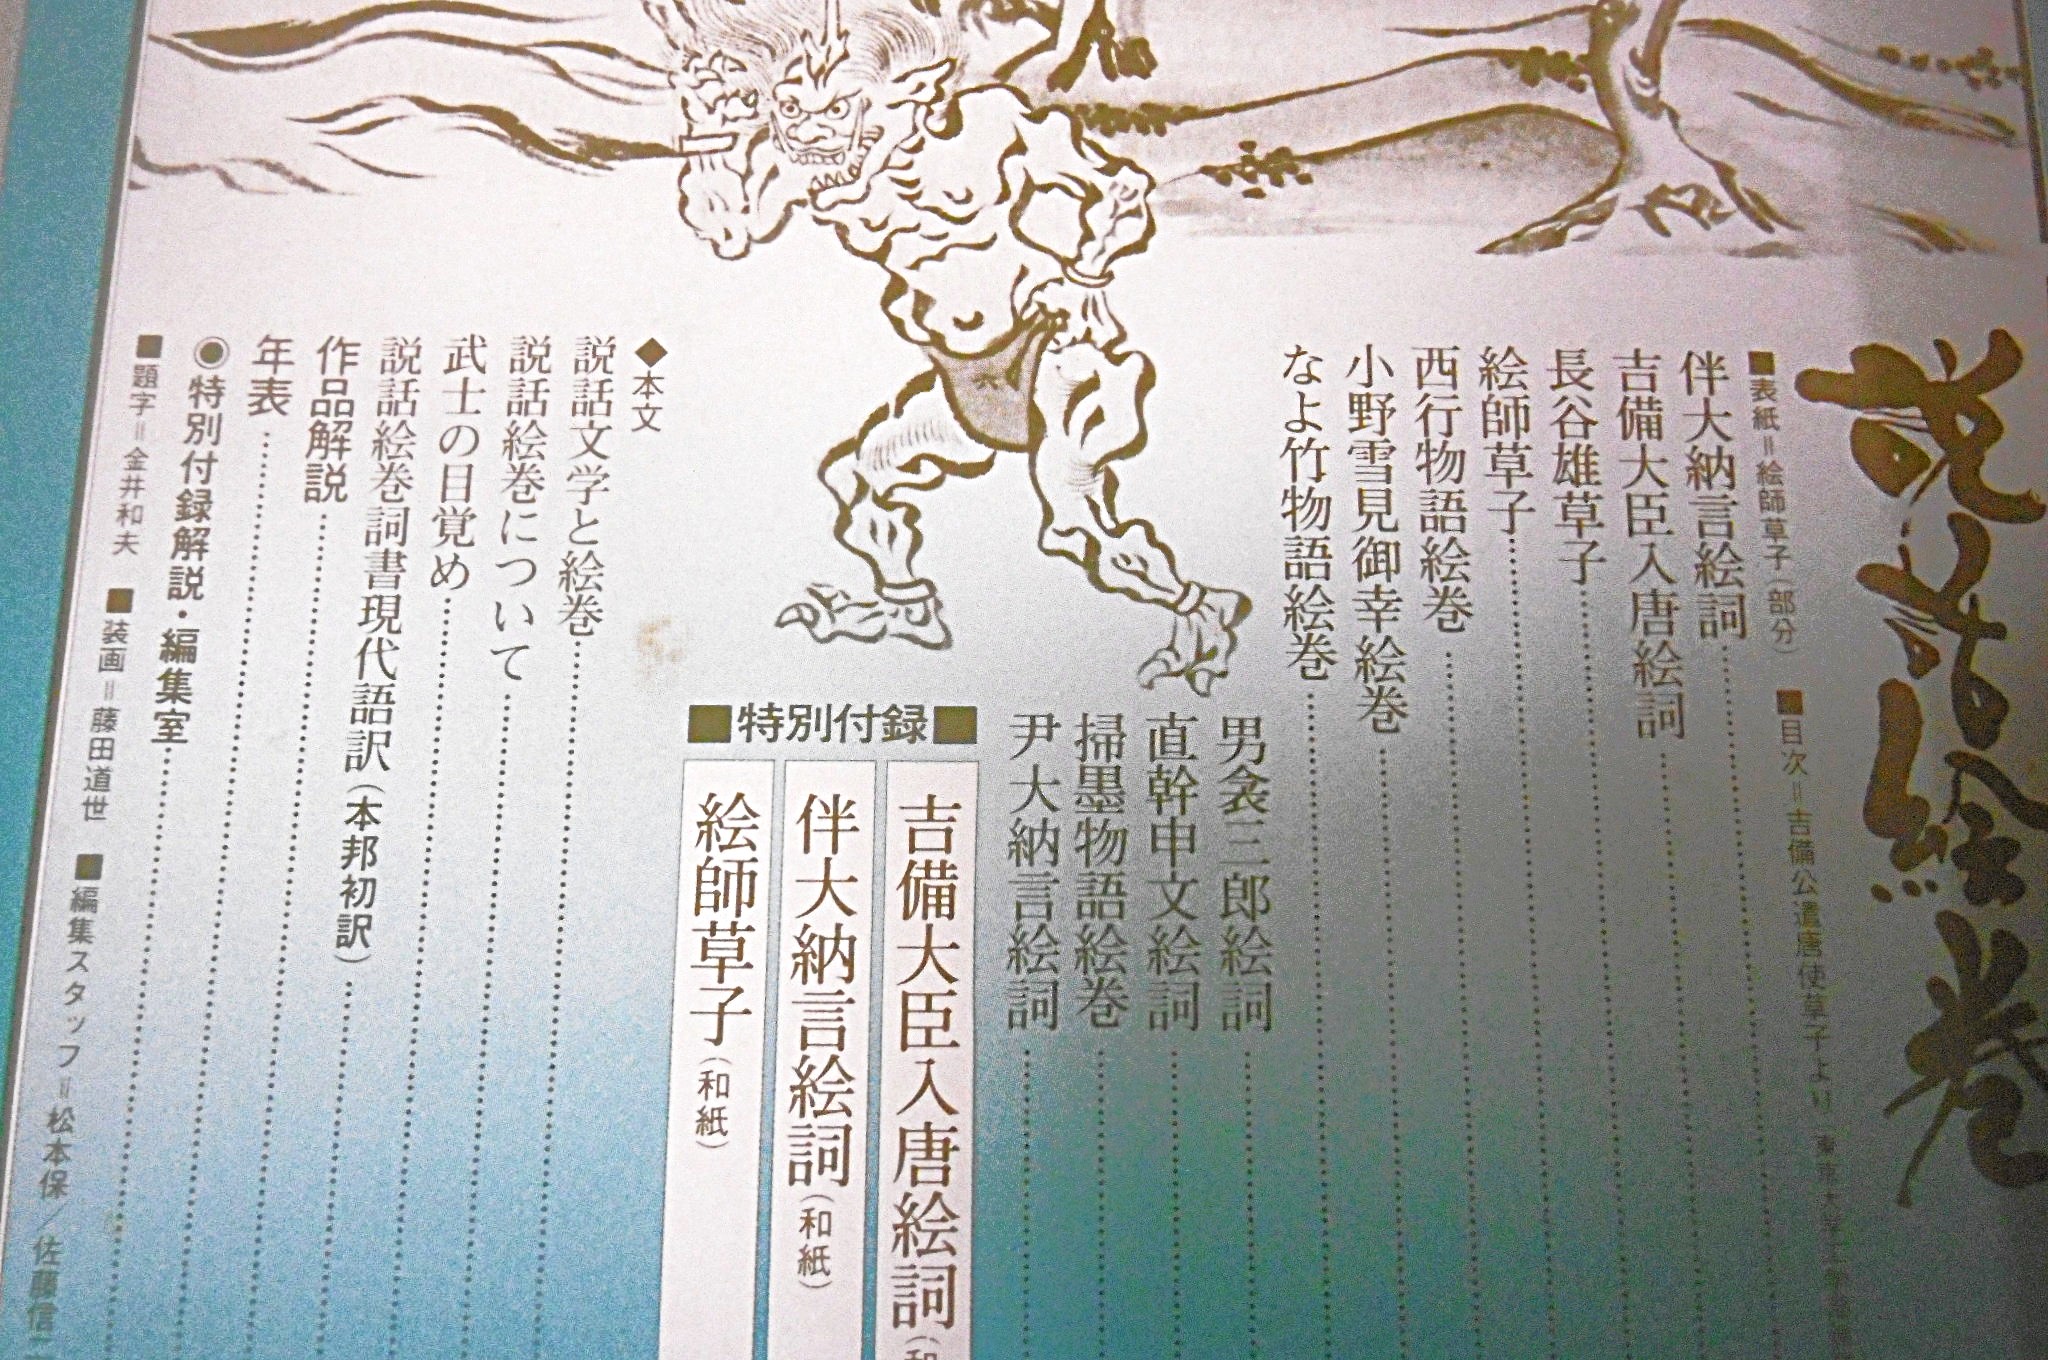 説話絵巻
■表紙＝絵師草子（部分） ■目次＝吉備公遣唐使草子より
伴大納言絵詞
吉備大臣入唐絵詞
長谷雄草子
絵師草子
西行物語絵巻
小野雪見御幸絵巻
なよ竹物語絵巻
男衾三郎絵詞
直幹申文絵詞
掃墨物語絵巻
尹大納言絵詞
■特別付録■
吉備大臣入唐絵詞
伴大納言絵詞（和紙）
絵師草子（和紙）
◆本文
説話文学と絵巻
説話絵巻について
武士の目覚め
説話絵巻詞書現代語訳（本邦初訳）
作品解説
年表
◉特別付録解説・編集室
■題字＝金井和夫 ■装画＝藤田道世 ■編集スタッフ＝松本保／佐藤信二